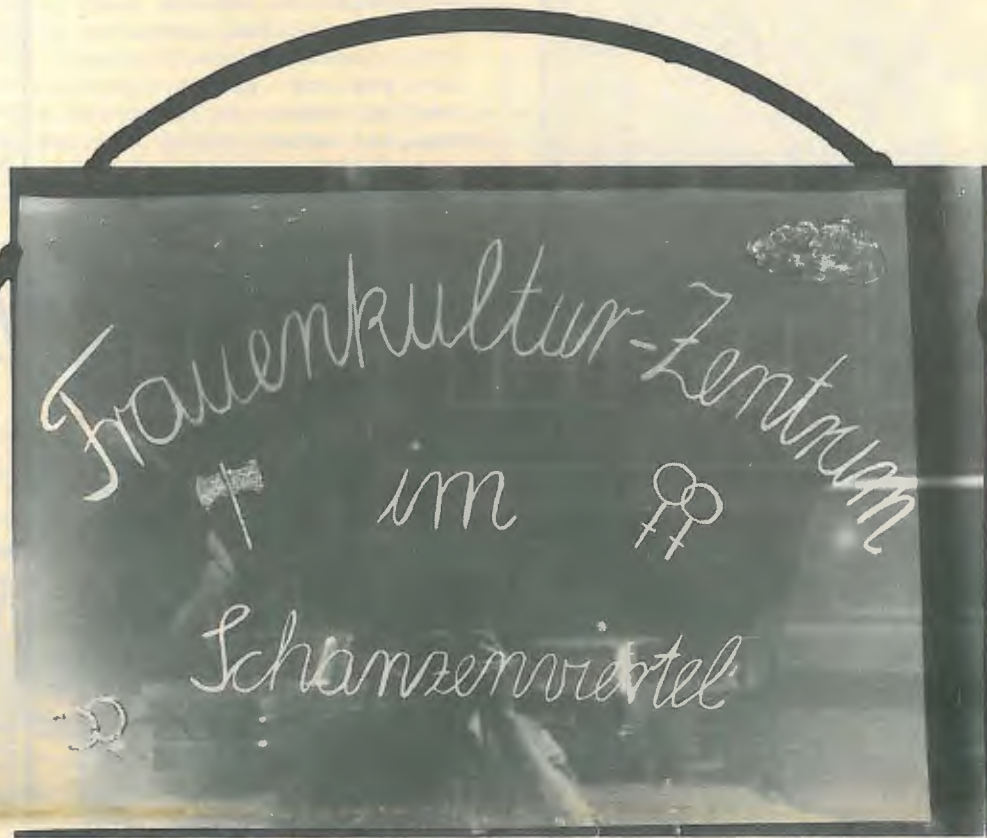 Frauenkultur-Zentrum
im
Schanzenviertel